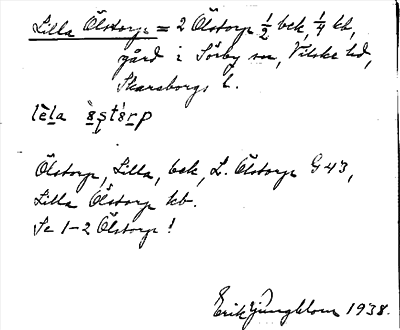 Lilla Ölstorp = 2 Ölstorp ½ bek, ¼ kb,
gård i Sörby sn, Vilske hd,
Skaraborgs l.
Ölstorp, Lilla, bek, L. Ölstorp G 43,
Lilla Ölstorp kb.
Se 1-2 Ölstorp!
Erik Ljungblom 1938.